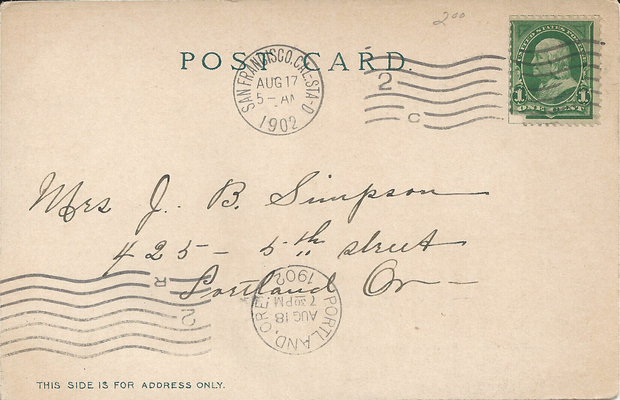 2⁰⁰
POST CARD.
SAN FRANCISCO, CAL. STA-D
AUG 17
5 - AM
1902
2
C
UNITED STATES POSTAGE
1 ONE CENT 1
Mrs J. B. Simpson
425 - 5th street
Portland Or -
R
2
PORTLAND, ORE.
AUG 18
7 30 PM
1902
THIS SIDE IS FOR ADDRESS ONLY.